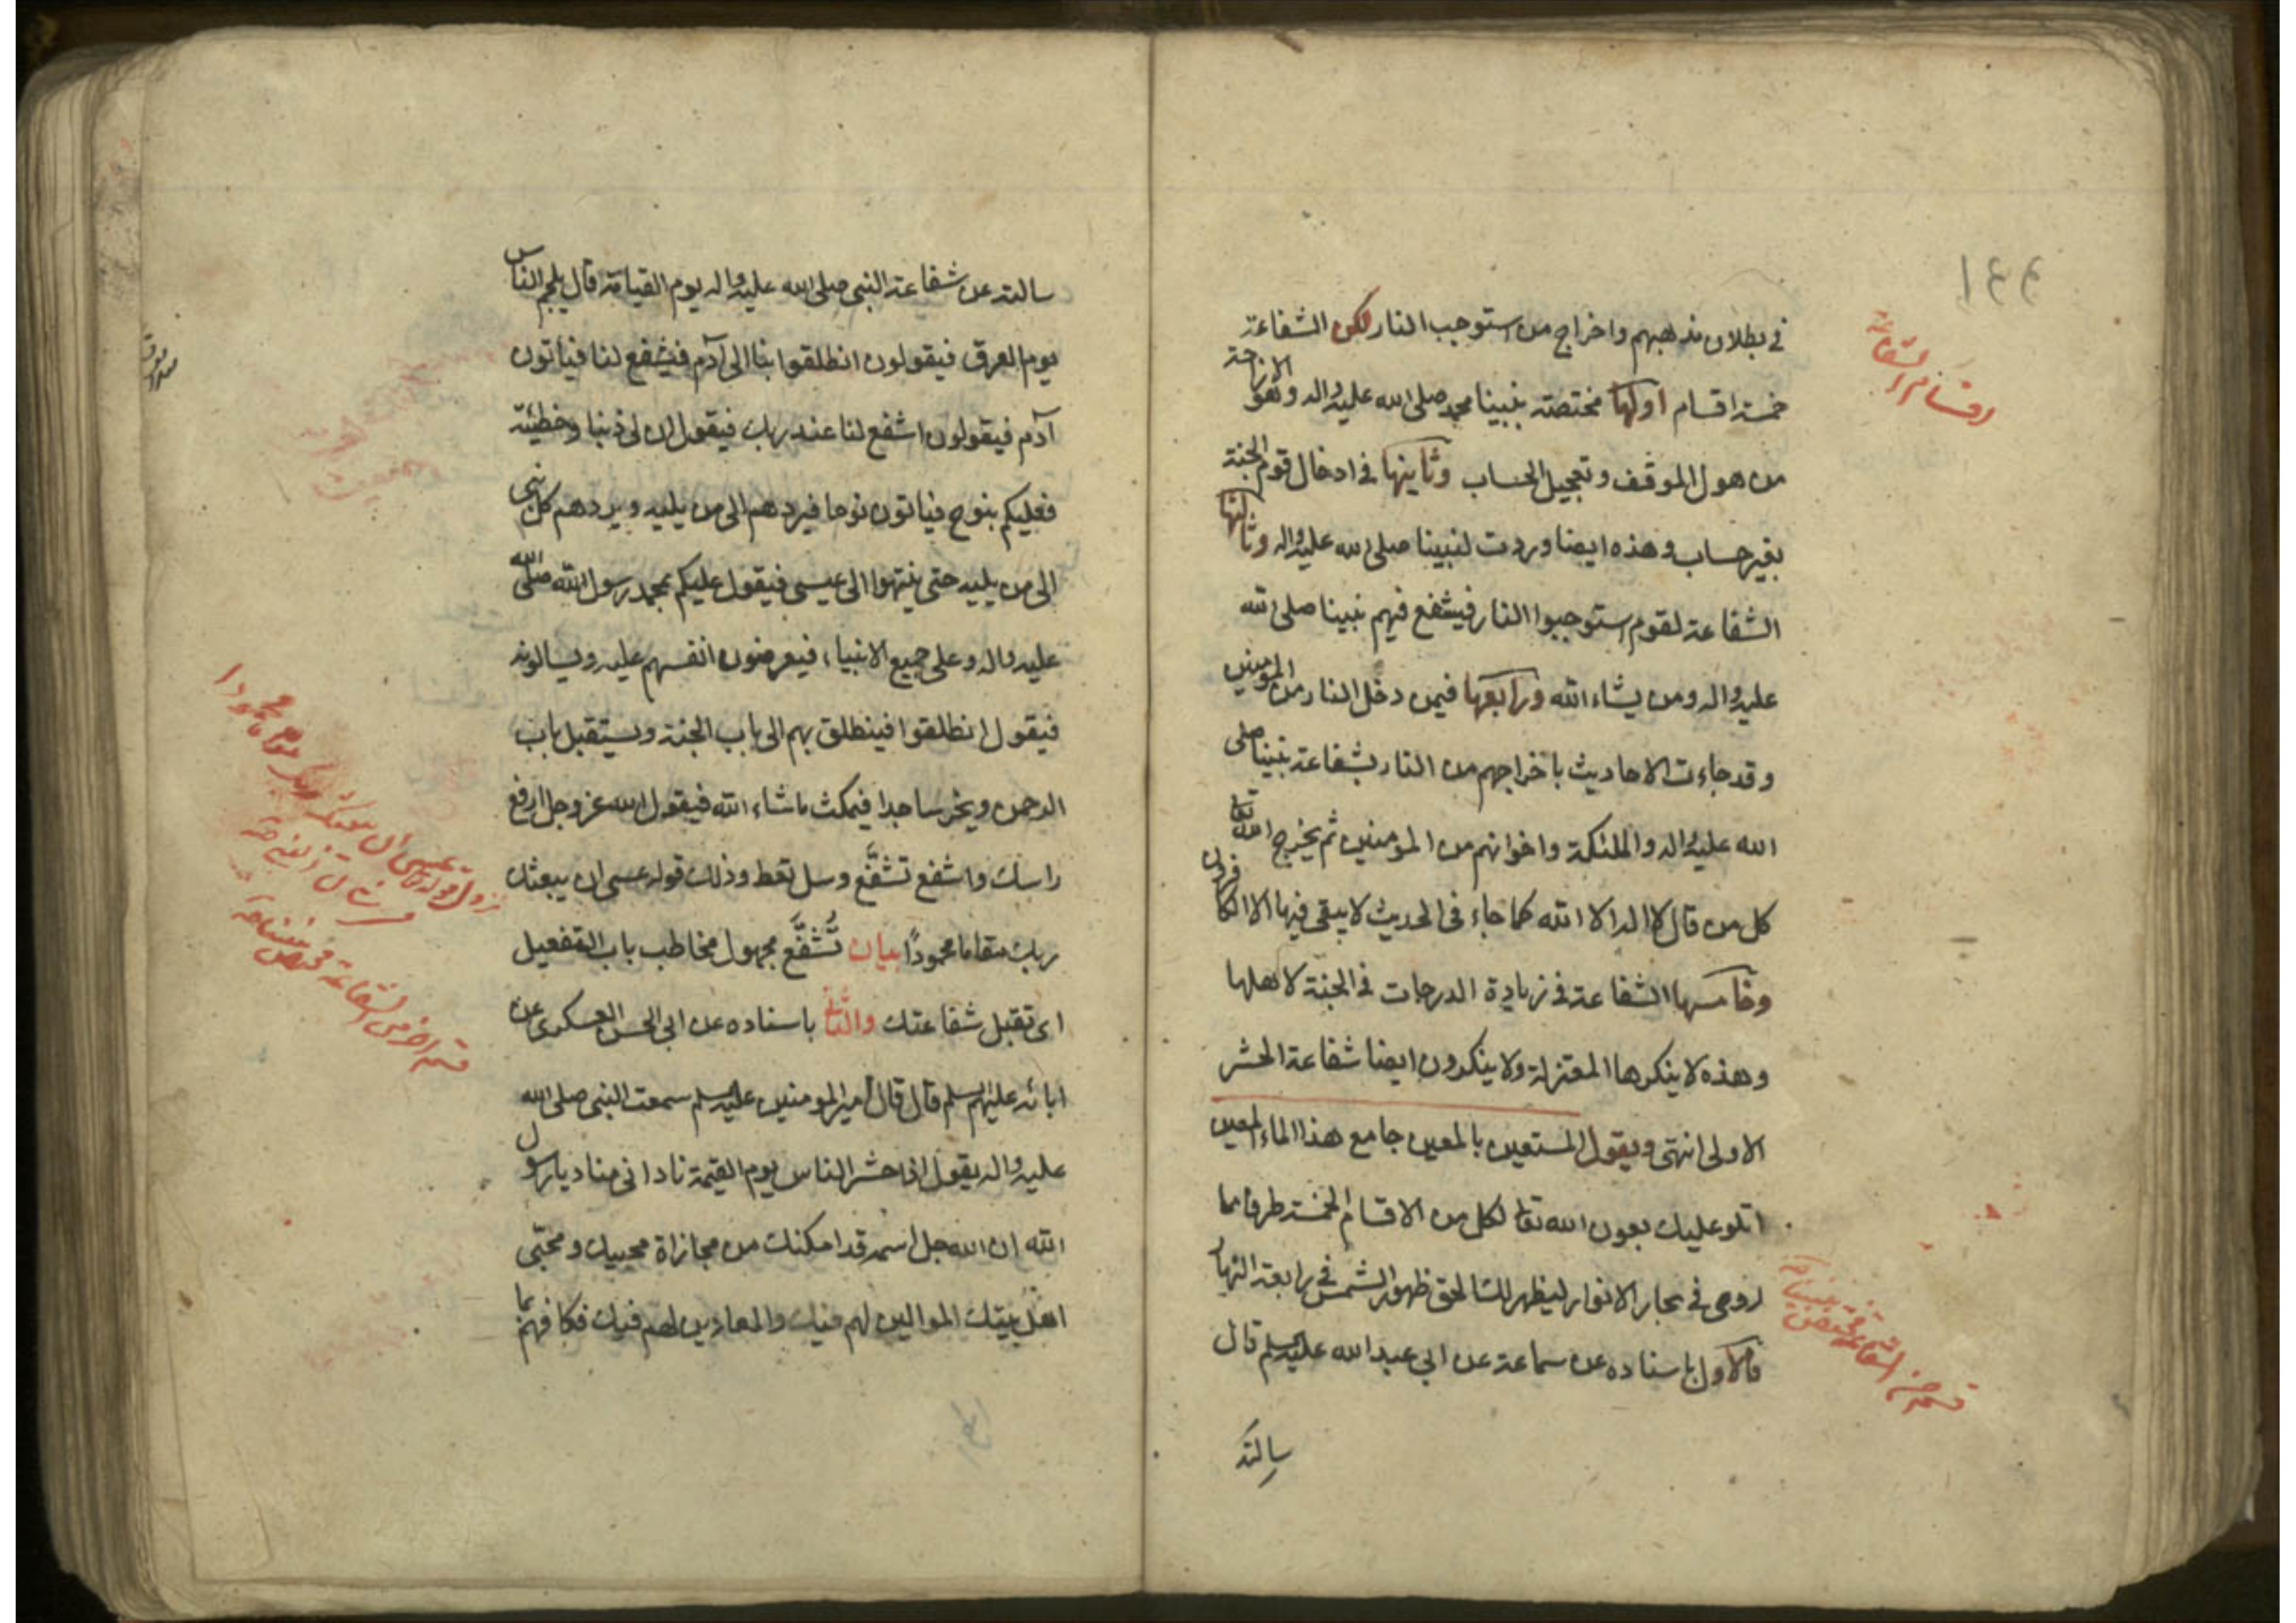 ١٤٤
اقسام الشفاعة
في بطلان مذهبهم واخراج من استوجب النار لكن الشفاعة
خمسة اقسام اولها مختصة بنبينا محمد صلى الله عليه واله وهو الاراحة
من هول الموقف وتعجيل الحساب وثانيها في ادخال قوم الجنة
بغير حساب وهذه ايضا وردت لنبينا صلى الله عليه واله وثالثها
الشفاعة لقوم استوجبوا النار فيشفع فيهم نبينا صلى الله
عليه واله ومن يشاء الله ورابعها فيمن دخل النار من المؤمنين
وقد جاءت الاحاديث باخراجهم من النار بشفاعة نبينا صلى
الله عليه واله والملئكة واخوانهم من المؤمنين ثم يخرج الله تعا
كل من قال لا اله الا الله كما جاء في الحديث لا يبقى فيها الا الكافرون
وخامسها الشفاعة في زيادة الدرجات في الجنة لاهلها
وهذه لا ينكرها المعتزلة ولا ينكرون ايضا شفاعة الحشر
الاولى انتهى ويقول المستعين بالمعين جامع هذا الماء المعين
اتلو عليك بعون الله تعا لكل من الاقسام الخمسة طرفا مما
اروى في بحار الانوار ليظهر لك الحق ظهور الشمس في رابعة النهار
فالاول باسناده عن سماعة عن ابي عبد الله عليه السلم قال
سالته
سالته عن شفاعة النبي صلى الله عليه واله يوم القيامة قال يلجم الناس
يوم العرق فيقولون انطلقوا بنا الى آدم فيشفع لنا فياتون
آدم فيقولون اشفع لنا عند ربك فيقول ان لي ذنبا وخطيئة
فعليكم بنوح فياتون نوحا فيردهم الى من يليه ويردهم كل نبي
الى من يليه حتى ينتهوا الى عيسى فيقول عليكم بمحمد رسول الله صلى الله
عليه واله وعلى جميع الانبياء فيعرضون انفسهم عليه ويسالونه
فيقول انطلقوا فينطلق بهم الى باب الجنة ويستقبل باب
الرحمن ويخر ساجدا فيمكث ما شاء الله فيقول الله عز وجل ارفع
راسك واشفع تشفّع وسل تعط وذلك قوله عسى ان يبعثك
ربك مقاما محمودًا بيان تُشفَّع مجهول مخاطب باب التفعيل
اى تقبل شفاعتك والثاني باسناده عن ابي الحسن العسكري عن
ابائه عليهم السلم قال قال امير المومنين عليه السلم سمعت النبي صلى الله
عليه واله يقول اذا حشر الناس يوم القيمة نادانى مناد يا رسول
الله ان الله جل اسمه قد امكنك من مجازاة محبيك ومحبّى
اهل بيتك الموالين لهم فيك والمعادين لهم فيك فكافهم بما